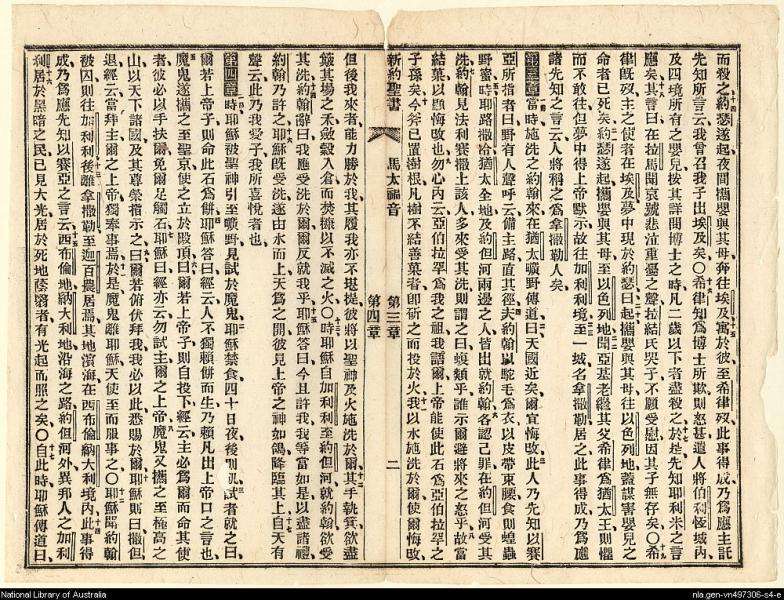 而殺之約瑟遂起夜間攜嬰與其母奔往埃及寓於彼至希律歿此事得成乃爲應主託
先知所言云我曾召我子出埃及矣〇希律知爲博士所欺則怒甚遣人將伯利恆城內
及四境所有之嬰兒按其詳問博士之時凡二歲以下者盡殺之於是先知耶利米之言
應矣其言曰在拉馬聞哀號悲泣重憂之聲拉結氏哭子不願受慰因其子無存矣〇希
律既歿主之使者在埃及夢中現於約瑟曰起攜嬰與其母往以色列地蓋謀害嬰兒之
命者已死矣約瑟遂起攜嬰與其母至以色列地聞亞基老繼其父希律爲猶太王則懼
而不敢往但夢中得上帝默示故往加利利境至一城名拿撒勒居之此事得成乃爲應
諸先知之言云人將稱之爲拿撒勒人矣
第三章當時施洗之約翰來在猶太曠野傳道曰天國近矣爾宜悔改此人乃先知以賽
亞所指者曰野有人聲呼云備主路直其徑夫約翰以駝毛爲衣以皮帶束腰食則蝗蟲
野蜜時耶路撒冷猶太全地及約但河兩邊之人皆出就約翰各認己罪在約但河受其
洗約翰見法利賽撒土該人多來受其洗則謂之曰蝮類乎誰示爾避將來之怒乎故當
結菓以顯悔改也勿心內云亞伯拉罕爲我之祖我語爾上帝能使此石爲亞伯拉罕之
子孫矣今斧已置樹根凡樹不結善菓者卽斫之而投於火我以水施洗於爾使爾悔改
新約聖書 馬太福音 第三章 第四章 二
但後我來者能力勝於我其履我亦不堪提彼將以聖神及火施洗於爾其手執箕欲盡
簸其場之禾斂穀入倉而焚糠以不滅之火〇時耶穌自加利利至約但河就約翰欲受
其洗約翰辭曰我應受洗於爾爾反就我乎耶穌答曰今且許我我等當如是以盡諸禮
約翰乃許之耶穌旣受洗遂由水而上天爲之開彼見上帝之神如鴿降臨其上自天有
聲云此乃我愛子我所喜悅者也
第四章時耶穌被聖神引至曠野見試於魔鬼耶穌禁食四十日夜後則飢試者就之曰
爾若上帝子則命此石爲餅耶穌答曰經云人不獨賴餅而生乃賴凡出上帝口之言也
魔鬼遂攜之至聖京使之立於殿頂曰爾若上帝子則自投下經云主必爲爾而命其使
者彼必以手扶爾免爾足觸石耶穌曰經亦云勿試主爾之上帝魔鬼又攜之至極高之
山以天下諸國及其尊榮指示之曰爾若俯伏拜我我必以此悉賜於爾耶穌則曰撒但
退經云當拜主爾之上帝獨奉事焉於是魔鬼離耶穌天使至而服事之〇耶穌聞約翰
被囚則往加利利後離拿撒勒至迦百農居焉其地濱海在西布倫納大利境內此事得
成乃爲應先知以賽亞之言云西布倫地納大利地沿海之路約但河外異邦人之加利
利居於黑暗之民已見大光居於死地陰翳者有光起而照之矣〇自此時耶穌傳道曰
National Library of Australia
nla.gen-vn497306-s4-e